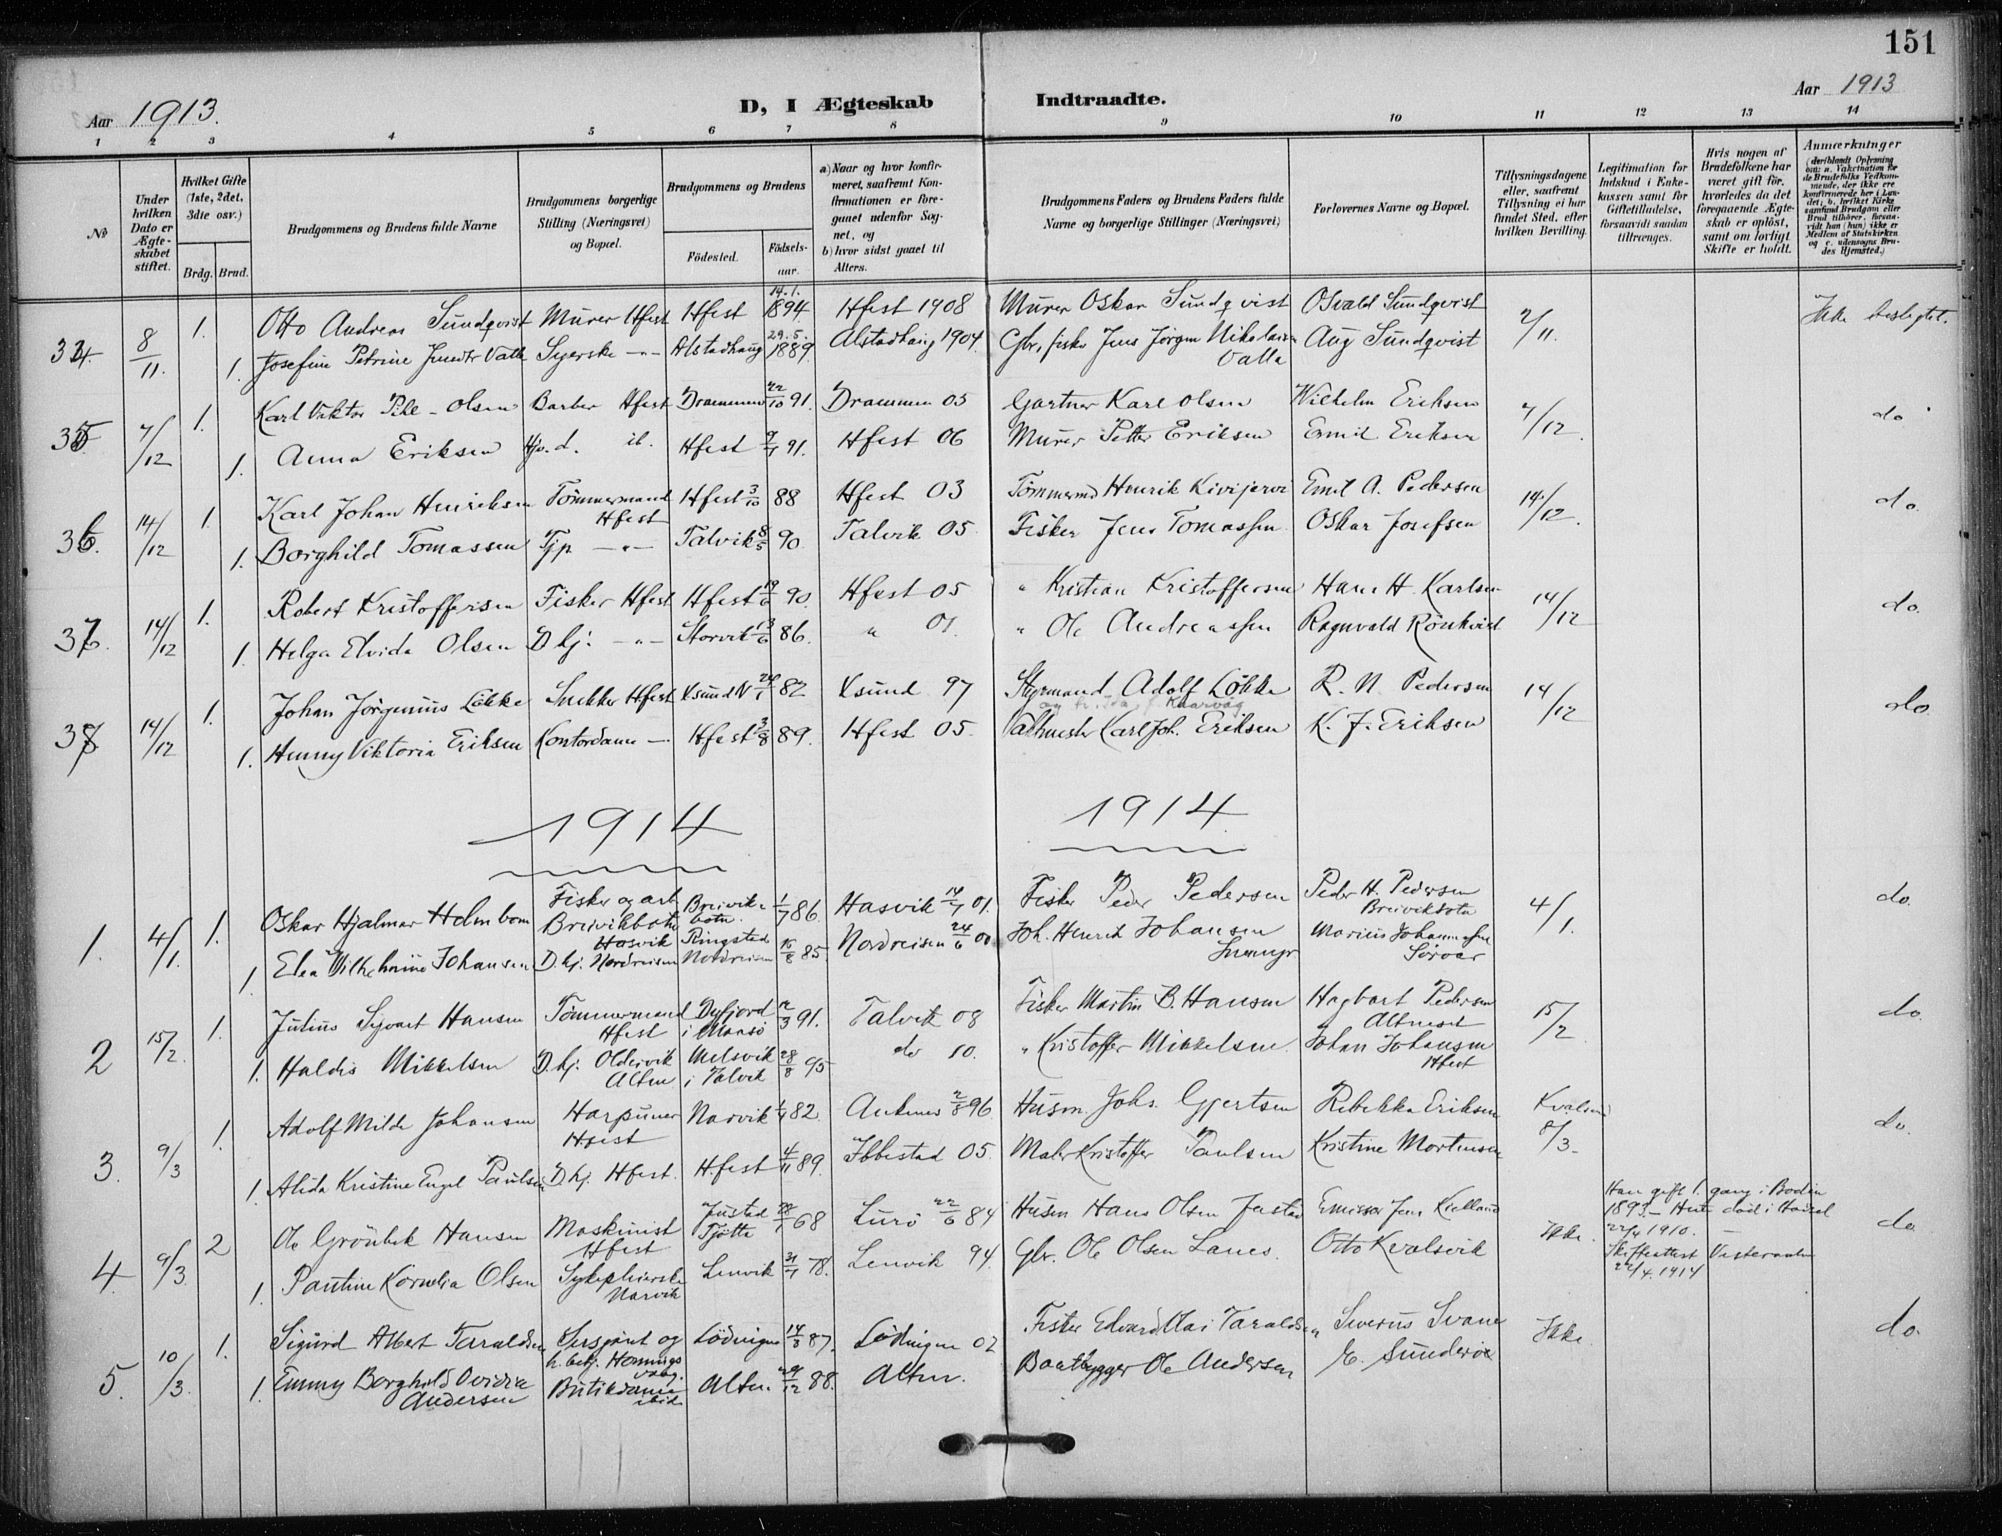 151
Aar 1913.
D, I Ægteskab Indtraadte.
Aar 1913
1 2 3 4 5 6 7 8 9 10 11 12 13 14
No
Under hvilken Dato er Ægteskabet stiftet.
Hvilket Gifte (1ste, 2det, 3dte osv.)
Brdg. Brud.
Brudgommens og Brudens fulde Navne
Brudgommens borgerlige Stilling (Næringsvei) og Bopæl.
Brudgommens og Brudens
Fødested.
Fødsels-aar.
a) Naar og hvor konfirmeret, saafremt Konfirmationen er foregaaet udenfor Sognet, og
b) hvor sidst gaaet til Alters.
Brudgommens Faders og Brudens Faders fulde Navne og borgerlige Stillinger (Næringsvei)
Forlovernes Navne og Bopæl.
Tillysningsdagene eller, saafremt Tillysning ei har fundet Sted, efter hvilken Bevilling.
Legitimation for Indskud i Enkekassen samt for Giftetilladelse, forsaavidt saadan tiltrænges.
Hvis nogen af Brudefolkene har været gift før, hvorledes da det foregaaende Ægteskab er opløst, samt om lovligt Skifte er holdt.
Anmærkninger
34 8/11. 1. Otto Andreas Sundqvist Murer Hfest Hfest 14.1. 1894 Hfest 1908 Murer Oskar Sundqvist Osvald Sundqvist 2/11. Ikke beslegtet.
1. Josefine Petrine Valla Syerske -"- Alstadhaug 29.5. 1889. Alstadhaug 1904. Gbr. fisker Jens Jørgen Nikolaisen Valla Aug Sundqvist
35 7/12 1. Karl Viktor Pihl-Olsen Barber Hfest Drammen 22/10 91. Drammen 05 Gartner Karl Olsen Wilhelm Eriksen 7/12. do
1. Anna Eriksen ib. Hfest 91. Hfest 06 Murer Petter Eriksen Emil Eriksen
36. 14/12 1. Karl Johan Henriksen Tømmermand Hfest Hfest 3/10 88 Hfest 03 Tømmermd Henrik Kivijervi Emil A. Pedersen 14/12. do.
1. Borghild Tomassen Tjp -"- Talvik 8/5 90 Talvik 05 Fisker Jens Tomassen Oskar Josefsen
37. 14/12 1. Robert Kristoffersen Fisker Hfest Hfest 19/6 90. Hfest 05 " Kristian Kristoffersen Hans H. Karlsen 14/12 do.
1. Helga Elvida Olsen D hj: -"- Storvik 13/6 86. " 01. " Ole Andreassen Ragnvald Rönkvist
38 14/12 1. Johan Jørginius Løkke Snekker Hfest Ksund N 82 Ksund 97 Styrmand Adolf Løkke R. N. Pedersen 14/12 do.
1. Henny Viktoria Eriksen Kontordame — Hfest 3/8 89. Hfest 05. Karl Joh. Eriksen K. J. Eriksen
1914 1914
1. 4/1. 1. Oskar Hjalmar Holmbom Fisker og arb Breivikbotn Hasvik Breivikbotn. 1/7 86. Hasvik 14/7 01. Fisker Peder Pedersen Peder H. Pedersen Breivikbotn 4/1. do.
1 Elea Wilhelmine Johansen D. hj. Nordreisen Ringstad Nordreisen 15/8 85. Nordreisen 24/6 00 Joh. Henrik Johansen Marius Johannessen Sørvær
2 15/2. 1. Julius Syvart Hansen Tømmermand Hfest Dyfjord i Maasø 12/3 91. Talvik 08 Fisker Martin B. Hansen Hagbart Pedersen Altneset 15/2 do.
1. Haldis Mikkelsen D. hj. Oldervik Alten Melsvik i Talvik 28/8 95 do 10. " Kristoffer Mikkelsen Johan Johansen Hfest
3. 9/3 1. Adolf Milde Johansen Harpuner Hfest Narvik 82 Ankenes 2/8 96. Husm. Johs. Gjertsen Rebekka Eriksen Kvalsund 8/3. do.
1. Alida Kristine Engel Paulsen D. hj. Hfest. Hfest 4/11 89. Ibbestad 05. Maler Kristoffer Paulsen Kristine Mortensen
4. 9/3 2 Ole Grönbek Hansen Maskinist Hfest Tjøtta 68 Lurö 22/6 84 Husm Hans Olsen Emissær Jens Kielland Ikke. Han gift 1. gang i Bodin 1893. — Hustr. død i Hadsel 22/4 1910. — Skifteattest Vesteraalen 22/4. 1914 do
1. Pauline Kornelia Olsen Sykepleierske Narvik Lenvik 78. Lenvik 94. Gbr. Ole Olsen Lanes. Otto Kvalsvik
5. 10/3. 1. Sigurd Albert Taraldsen Sersjant og h. betj. Honningsvaag. Lödingen 14/3 87. Lödingen 02 Fisker Edvard Taraldsen Severus Svane Ikke do.
1. Emmy Borghild Ovidia Andersen Butikdame ibid Alten. 29/12 88. Alten. Baatbygger Ole Andersen E. Sunderöe